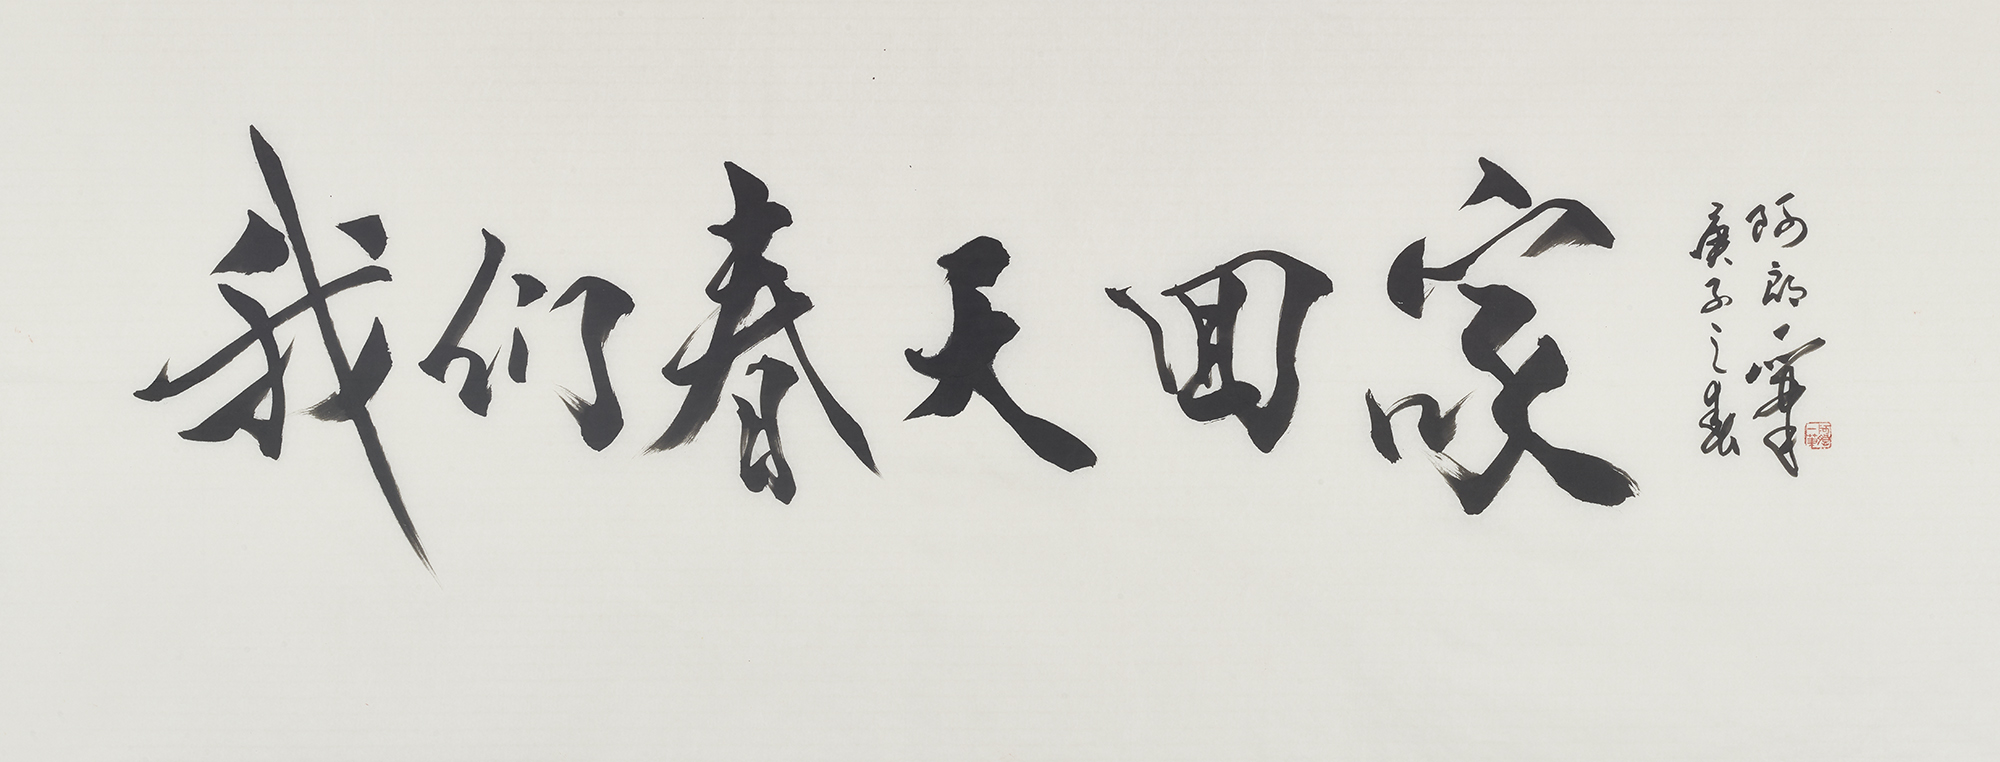 我们春天回家
阿郎
庚子之春